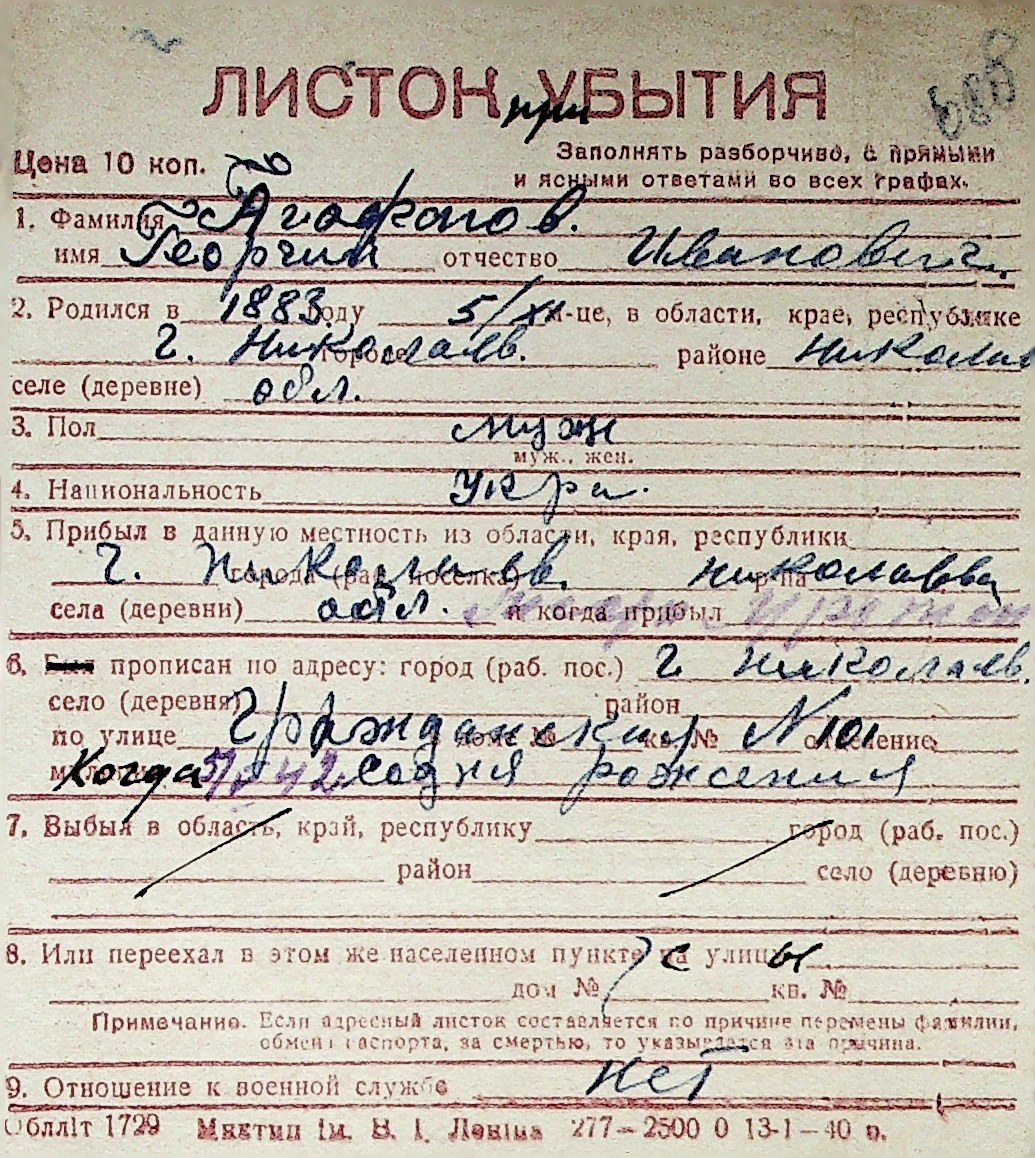 ЛИСТОК УБЫТИЯ
при
Цена 10 коп.
Заполнять разборчиво, с прямыми
и ясными ответами во всех графах.
1. Фамилия Агафонов.
имя Георгий отчество Иванович.
2. Родился в 1883 году 5/XI м-це, в области, крае, республике
г. Николаев. городе районе Николаев
селе (деревне) обл.
3. Пол муж
муж., жен.
4. Национальность укра.
5. Прибыл в данную местность из области, края, республики
г. Николаев. города (раб. поселка) р-на Николаевск
села (деревни) обл. и когда прибыл
6. Был прописан по адресу: город (раб. пос.) г. Николаев.
село (деревня) район
по улице Гражданская дом № кв. № N 101 отделение
Когда со дня рожения
7. Выбыл в область, край, республику город (раб. пос.)
район село (деревню)
8. Или переехал в этом же населенном пункте с улицы
дом № кв. №
Примечание. Если адресный листок составляется по причине перемены фамилии,
обмена паспорта, за смертью, то указывается эта причина.
9. Отношение к военной службе нет
Обллiт 1729 Миктип iм. В. I. Ленiна 277—2500 0 13-1—40 р.